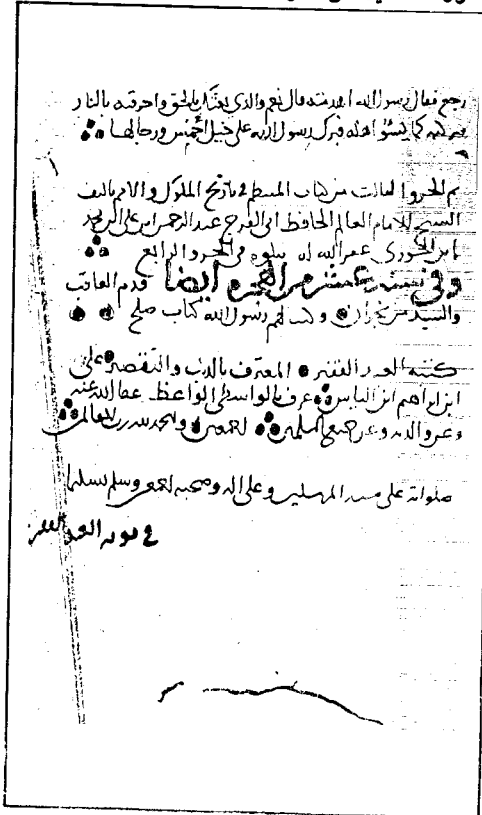 رجع فقال رسول الله اهدمته قال نعم والذي بعثك بالحق واحرقته بالنار
فتركته كما يسوء اهله فبرك رسول الله على خيل أحمس ورجالها
تم الجزو الثالث من كتاب المنتظم في تاريخ الملوك والامم تاليف
الشيخ الامام العالم الحافظ ابي الفرج عبد الرحمن ابن علي ابن محمد
ابن الجوزي غفر الله له يتلوه في الجزو الرابع
وفي سنة عشر من الهجرة أيضا قدم العاقب
والسيد من نجران وكتب لهم رسول الله كتاب صلح
كتبه العبد الفقير المعترف بالذنب والتقصير علي
ابن ابراهم ابن الياس عرف بالواسطي الواعظ عفا الله عنه
وعن والديه وعن جميع المسلمين اجمعين والحمد لله رب العالمين
صلواته على سيد المرسلين وعلى اله وصحبه اجمعين وسلم تسليما
في نوبة العبد الفقير